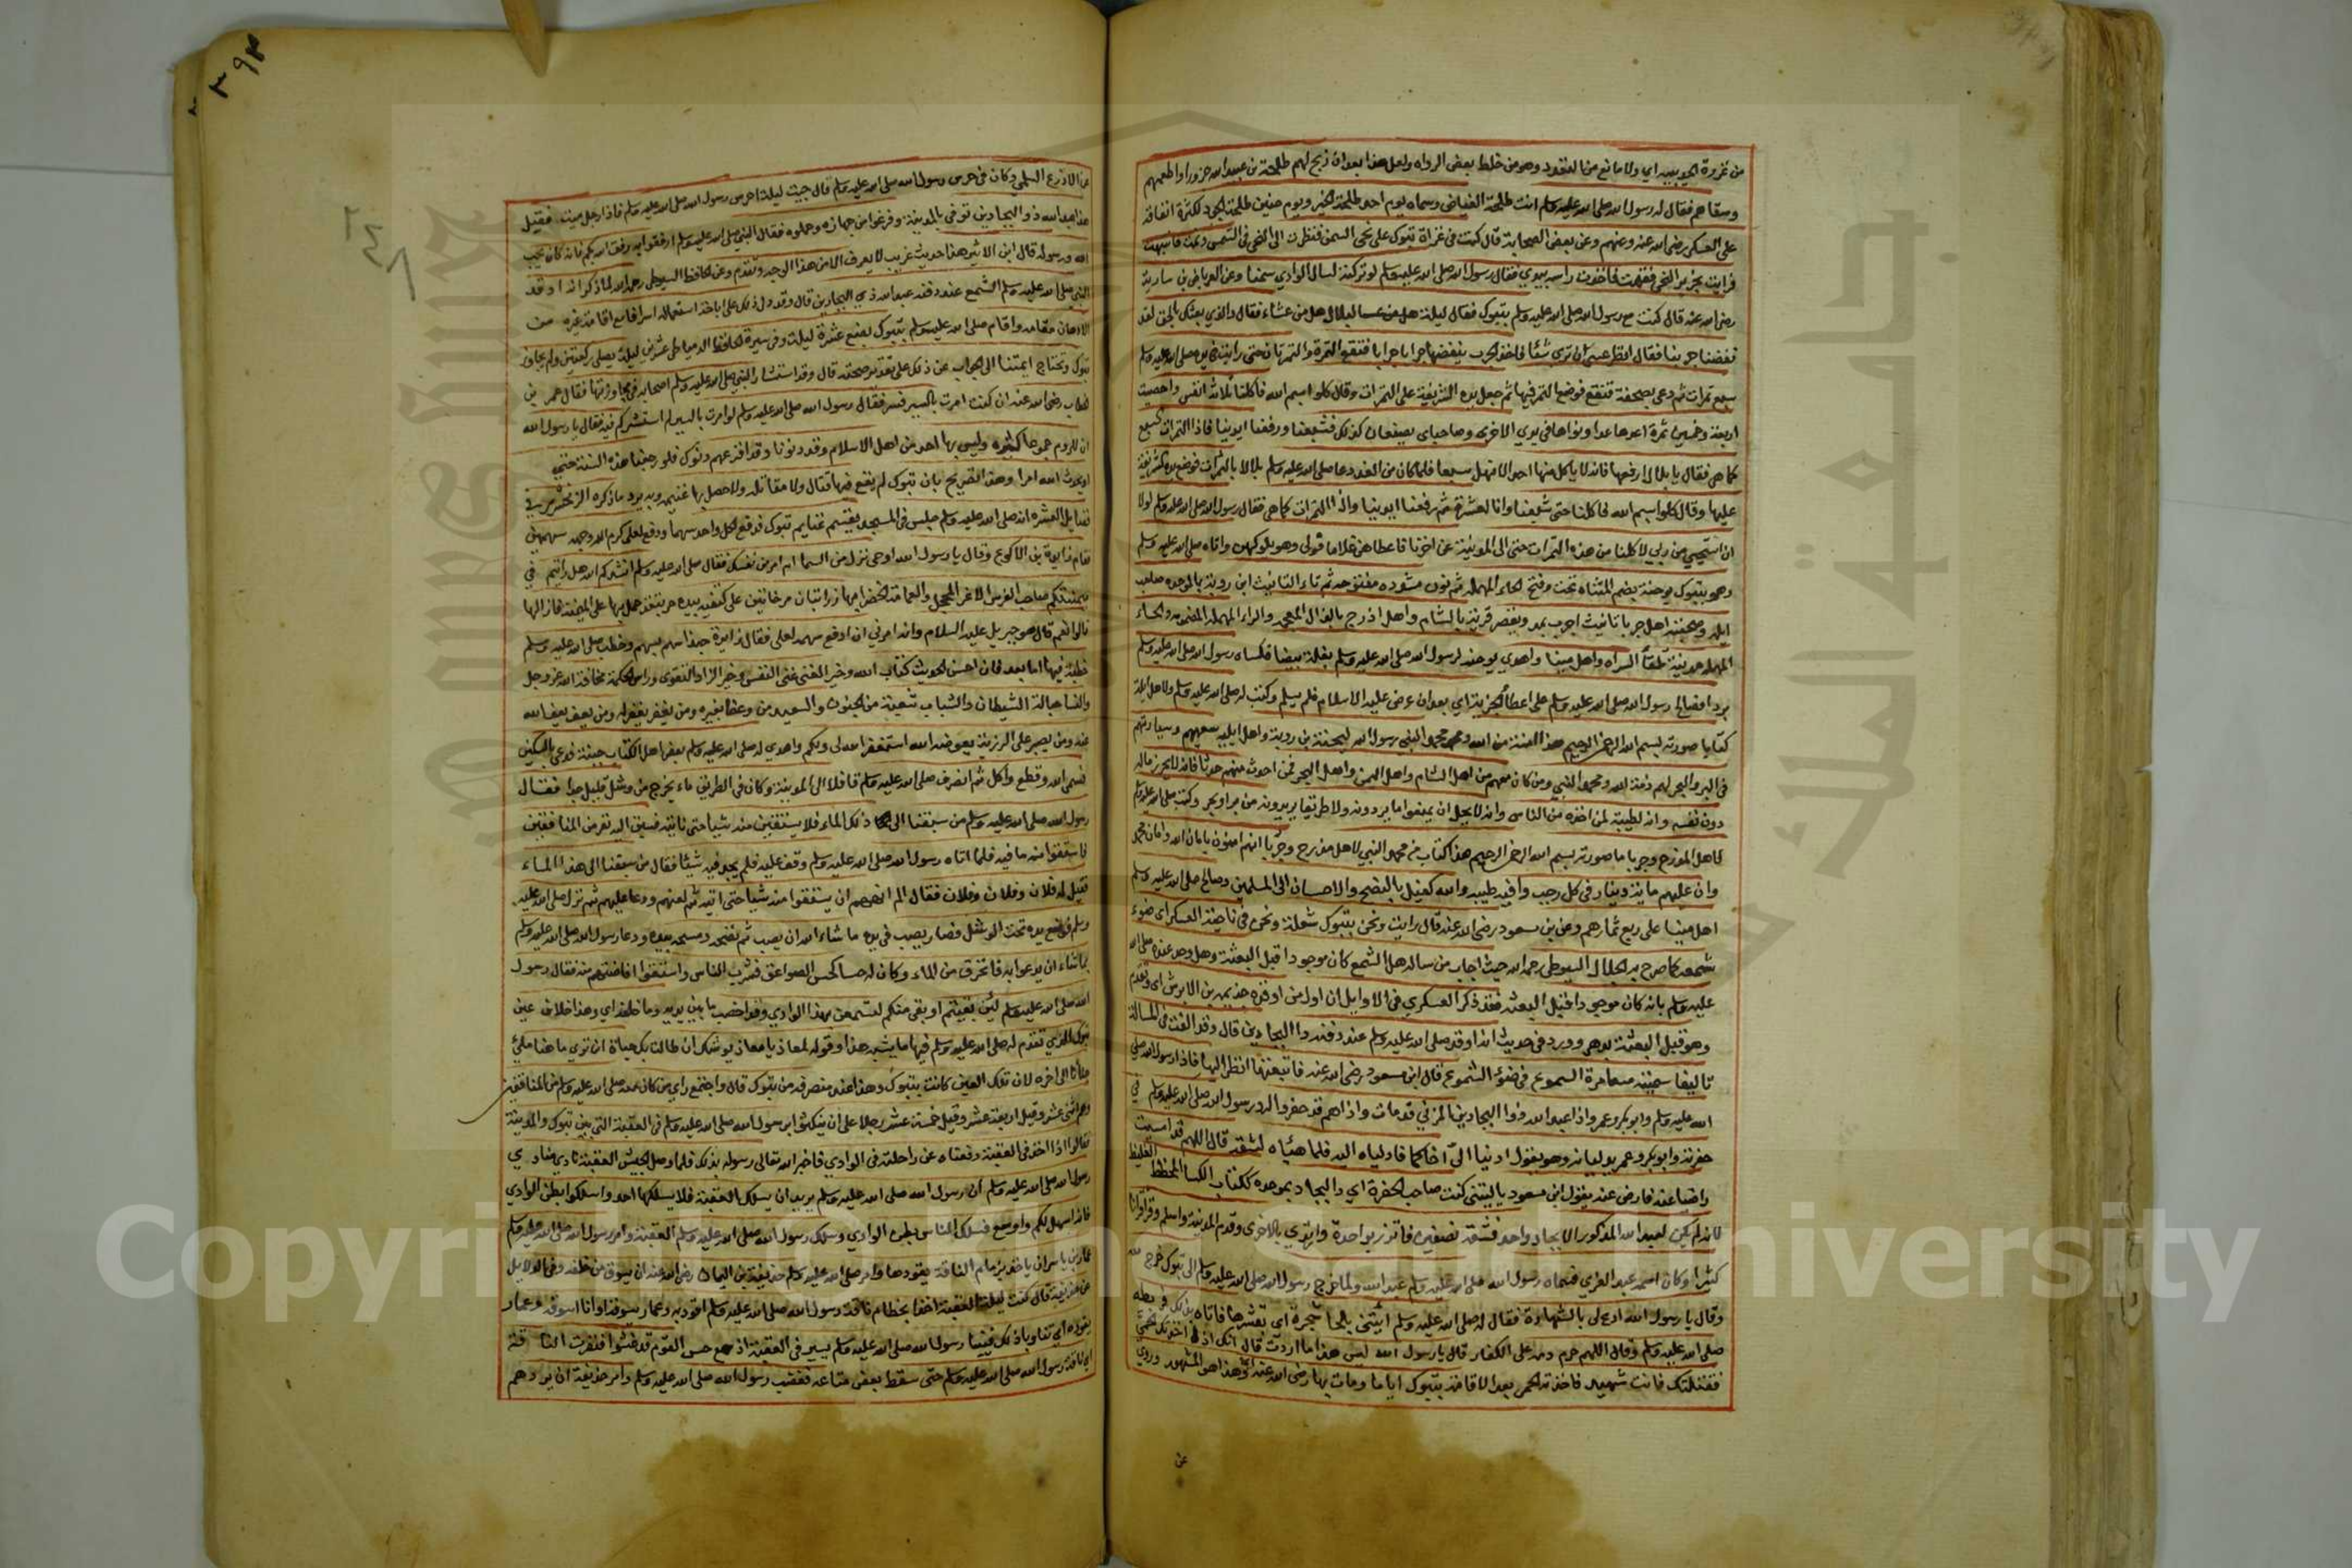 من غزوة الحديبية اي ولا مانع من التعدد وهو من خلط بعض الرواه ولعل هذا بعد ان ذبح لهم طلحة بن عبيد الله جزورا واطعمهم
وسقاهم فقال له رسول الله صلى الله عليه وسلم انت طلحة الفياض وسماه يوم احد طلحة الخير ويوم حنين طلحة الجود لكثرة انفاقه
على العسكر رضي الله عنه وعنهم وعن بعض الصحابة قال كنت في غزاة تبوك على نحي السمن فنظرت الى النحي في الشمس ونمت فانتبهت
فرايت بخرير النحي فقمت فاخذت راسه بيدي فقال رسول الله صلى الله عليه وسلم لو تركته لسال الوادي سمنا وعن العرباض بن سارية
رضي الله عنه قال كنت مع رسول الله صلى الله عليه وسلم بتبوك فقال ليلة لبلال هل من عشاء فقال والذي بعثك بالحق لقد
نفضنا جربنا فقال انظر عسى ان ترى شيئا فاخذ الجرب ينفضها جرابا جرابا فتقع التمرة والتمرتان حتى رايت في يده صلى الله عليه وسلم
سبع تمرات ثم دعى بصحفة فوضع التمر فيها ثم جعل يده الشريفة على التمرات وقال كلوا بسم الله فاكلنا ثلاثة انفس واحصيت
اربعة وخمسين تمرة اعدها عدا ونواها في يدي الاخرى وصاحباي يصنعان كذلك فشبعنا ورفعنا ايدينا فاذا التمرات السبع
كما هي فقال يا بلال ارفعها فانه لا ياكل منها احد الا نهل شبعا فلما كان من الغد دعا صلى الله عليه وسلم بلالا بالتمرات فوضع يده الشريفة
عليها وقال كلوا بسم الله فاكلنا حتى شبعنا وانا لعشرة ثم رفعنا ايدينا واذا التمرات كما هي فقال رسول الله صلى الله عليه وسلم لولا
ان استحيي من ربي لاكلنا من هذه التمرات حتى الى المدينة عن اخرنا فاعطاهن غلاما فولى وهو يلوكهن واتاه صلى الله عليه وسلم
وهو بتبوك يوحنة بضم المثناه تحت وفتح الحاء المهملة ثم نون مشدده مفتوحه ثم تاء التانيث ابن روبة بالموحده صاحب
ايله وصحبته اهل جربا تانيث اجرب يمد ويقصر قرية بالشام واهل اذرح بالذال المعجمه والراء المهمله المضمومه والحاء
المهمله مدينة تلقاء السراه واهل مينا واهدي يوحنه لرسول الله صلى الله عليه وسلم بغلة بيضا فكساه رسول الله صلى الله عليه وسلم
بردا فصالح رسول الله صلى الله عليه وسلم على اعطاء الجزية اي بعد ان عرض عليه الاسلام فلم يسلم وكتب له صلى الله عليه وسلم ولاهل ايلة
كتابا صورته بسم الله الرحمن الرحيم هذا امنة من الله ومحمد النبي رسول الله ليحنة بن روبة واهل ايليه سفنهم وسيارتهم
في البر والبحر لهم ذمة الله ومحمد النبي ومن كان معهم من اهل الشام واهل اليمن واهل البحر فمن احدث منهم حدثا فانه لا يحرز ماله
دون نفسه وانه لطيبة لمن اخذه من الناس وانه لا يحل ان يمنعوا ما يردونه ولا طريقا يريدونه من بر او بحر وكتب صلى الله عليه وسلم
لاهل اذرح وجربا ما صورته بسم الله الرحمن الرحيم هذا كتاب من محمد النبي لاهل اذرح وجربا انهم امنون بامان الله وامان محمد
وان عليهم ماية دينار في كل رجب وافية طيبه والله كفيل بالنصح والاحسان الى المسلمين وصالح صلى الله عليه وسلم
اهل مينا على ربع ثمارهم وعن بن مسعود رضي الله عنه قال رايت ونحن بتبوك شعلة ونحن في ناحية العسكر اي ضوء
شمعه كما صرح به الجلال السيوطي رحمه الله حيث اجاب من ساله هل الشمع كان موجودا قبل البعثة وهل وجد عنده صلى الله
عليه وسلم بانه كان موجودا قبل البعثه فقد ذكر العسكري في الاوايل ان اول من اوقده جذيمه بن الابرش اي وتقدم
وهو قبل البعثة بدهر وورد في حديث انه اوقد صلى الله عليه وسلم عند دفنه ذا البجادين قال وقد الفت في المسالة
تاليفا سميته مسامرة السموع في ضوء الشموع قال ابن مسعود رضي الله عنه فاتبعتها انظر اليها فاذا رسول الله صلى
الله عليه وسلم وابو بكر وعمر واذا عبد الله ذوا البجادين المزني قد مات واذا هم قد حفروا له ورسول الله صلى الله عليه وسلم في
حفرته وابو بكر وعمر يدليانه وهو يقول ادنيا الي اخاكما فادلياه اليه فلما هيئاه لشقه قال اللهم قد امسيت
راضيا عنه فارض عنه يقول ابن مسعود يا ليتني كنت صاحب الحفرة اي والبجاد بموحده ككتاب الكسا المخطط الغليظ
لانه لم يكن لعبد الله المذكور الا بجاد واحد فشقه نصفين فاتزر بواحدة وارتدي بالاخرى وقدم المدينة واسلم وقرا قرانا
كثيرا وكان اسمه عبد العزي فسماه رسول الله صلى الله عليه وسلم عبد الله ولما خرج رسول الله صلى الله عليه وسلم الى تبوك خرج معه
وقال يا رسول الله ادع لي بالشهادة فقال له صلى الله عليه وسلم ايتني بلحا شجرة اي بقشرها فاتاه بذلك فربطه
صلى الله عليه وسلم وقال اللهم حرم دمه على الكفار قال يا رسول الله ليس هذا ما اردت قال انك اذا اخذتك الحمى
فقتلتك فانت شهيد فاخذته الحمى بعد الاقامة بتبوك اياما ومات بها رضي الله عنه وهذا هو المشهور وروي
عن
عن الادرع السلمي وكان في حرس رسول الله صلى الله عليه وسلم قال جيت ليلة احرس رسول الله صلى الله عليه وسلم فاذا رجل ميت فقيل
هذا عبد الله ذو البجادين توفي بالمدينة وفرغوا من جهازه وحملوه فقال النبي صلى الله عليه وسلم ارفقوا به رفق الله بكم فانه كان يحب
الله ورسوله قال ابن الاثير هذا حديث غريب لا يعرف الا من هذا الوجه وتقدم وعن الحافظ السيوطي رحمه الله لما ذكر انه اوقد
للنبي صلى الله عليه وسلم الشمع عند دفنه عبد الله ذي البجادين قال وقد دل ذلك على اباحة استعماله اسرافا مع اقامة غيره من
الادهان مقامه واقام صلى الله عليه وسلم بتبوك بضع عشرة ليلة وفي سيرة الحافظ الدمياطي عشرين ليلة يصلي ركعتين ولم يجاوز
تبوك وتحتاج ايمتنا الى الجواب عن ذلك على تقدير صحته قال وقد استشار النبي صلى الله عليه وسلم اصحابه في مجاوزتها فقال عمر بن
الخطاب رضي الله عنه ان كنت امرت بالسير فسر فقال رسول الله صلى الله عليه وسلم لو امرت بالسير لم استشركم فيه فقال يا رسول الله
ان للروم جموعا كثيره وليس بها احد من اهل الاسلام وقد دنونا وقد افزعهم دنوك فلو رجعنا هذه السنة حتى
او يحدث الله امرا وهذا التصريح بان تبوك لم يقع فيها قتال ولا مقاتله ولا حصل بها غنيمه وبه يرد ما ذكره الزمخشري في
فضايل العشره انه صلى الله عليه وسلم جلس في المسجد يقسم غنايم تبوك فدفع لكل واحد سهما ودفع لعلي كرم الله وجهه سهمين
فقام زايدة بن الاكوع وقال يا رسول الله اوحي نزل من السما ام امر من نفسك فقال صلى الله عليه وسلم انشدكم الله هل رايتم في
ميمنتكم صاحب الفرس الاغر المحجل والعمامة الخضرا لها ذوابتان مرخاتين على كتفيه بيده حربته فحمل بها على الميمنة فازالها
قالوا نعم قال هو جبريل عليه السلام وانه امرني ان ادفع سهمه لعلي فقال زايدة حبذا سهم مسهم وخطب صلى الله عليه وسلم
خطبة فيها اما بعد فان احسن الحديث كتاب الله وخير الغنى غنى النفس وخير الزاد التقوى وراس الحكمة مخافة الله عز وجل
والنسا حبالة الشيطان والشباب شعبة من الجنون والسعيد من وعظ بغيره ومن يغفر يغفر له ومن يعف يعف الله
عنه ومن يصبر على الرزية يعوضه الله استغفر الله لي ولكم واهدي له صلى الله عليه وسلم بعض اهل الكتاب جبنة فدعى بالسكين
فسمى الله وقطع واكل ثم انصرف صلى الله عليه وسلم قافلا الى المدينة وكان في الطريق ماء يخرج من وشل قليل جدا فقال
رسول الله صلى الله عليه وسلم من سبقنا الى ذلك الماء فلا يستقين منه شيئا حتى ناتيه فسبق اليه نفر من المنافقين
فاستقوا منه ما فيه فلما اتاه رسول الله صلى الله عليه وسلم وقف عليه فلم يجد فيه شيئا فقال من سبقنا الى هذا الماء
فقيل له فلان وفلان وفلان فقال الم انههم ان يستقوا منه شيئا حتى اتيه ثم لعنهم ودعا عليهم ثم نزل صلى الله عليه
وسلم فوضع يده تحت الوشل فصار يصب في يده ما شاء الله ان يصب ثم نضحه ومسحه بيده ودعا رسول الله صلى الله عليه وسلم
بما شاء ان يدعو به فانخرق من الماء وكان له حسا كحس الصواعق فشرب الناس واستقوا حاجتهم منه فقال رسول
الله صلى الله عليه وسلم لئن بقيتم او بقي منكم لتسمعن بهذا الوادي وقد اخصب ما بين يديه وما خلفه اي وهذا خلاف عين
تبوك الذي تقدم له صلى الله عليه وسلم فيها ما يشبه هذا وقوله لمعاذ يا معاذ يوشك ان طالت بك حياة ان ترى ما هنا ملئ
جنانا الى اخره لان تلك العين كانت بتبوك وهذا عند منصرفه من تبوك قال واجتمع راي من كان معه صلى الله عليه وسلم من المنافقين
وهم اثني عشر وقيل اربعة عشر وقيل خمسة عشر رجلا على ان ينكثوا برسول الله صلى الله عليه وسلم في العقبة التي بين تبوك والمدينة
فقالوا اذا اخذ في العقبة دفعناه عن راحلته في الوادي فاخبر الله تعالى رسوله بذلك فلما وصل الجيش العقبة نادي منادي
رسول الله صلى الله عليه وسلم ان رسول الله صلى الله عليه وسلم يريد ان يسلك العقبة فلا يسلكها احد واسلكوا بطن الوادي
فانه اسهل لكم واوسع فسلك الناس بطن الوادي وسلك رسول الله صلى الله عليه وسلم العقبة وامر رسول الله صلى الله عليه وسلم
عمار بن ياسر ان ياخذ بزمام الناقة يقودها وامر صلى الله عليه وسلم حذيفة بن اليمان رضي الله عنه ان يسوق من خلفه وفي الدلايل
عن حذيفة قال كنت ليلة العقبة اخذا بخطام ناقة رسول الله صلى الله عليه وسلم اقود به وعمار يسوقه او انا اسوقه وعمار
يقوده اي تناوبا ذلك فبينا رسول الله صلى الله عليه وسلم يسير في العقبة اذ سمع حس القوم قد غشوا فنفرت الناقة
اي ناقة رسول الله صلى الله عليه وسلم حتى سقط بعض متاعه فغضب رسول الله صلى الله عليه وسلم وامر حذيفة ان يردهم
Copyright © King Saud University